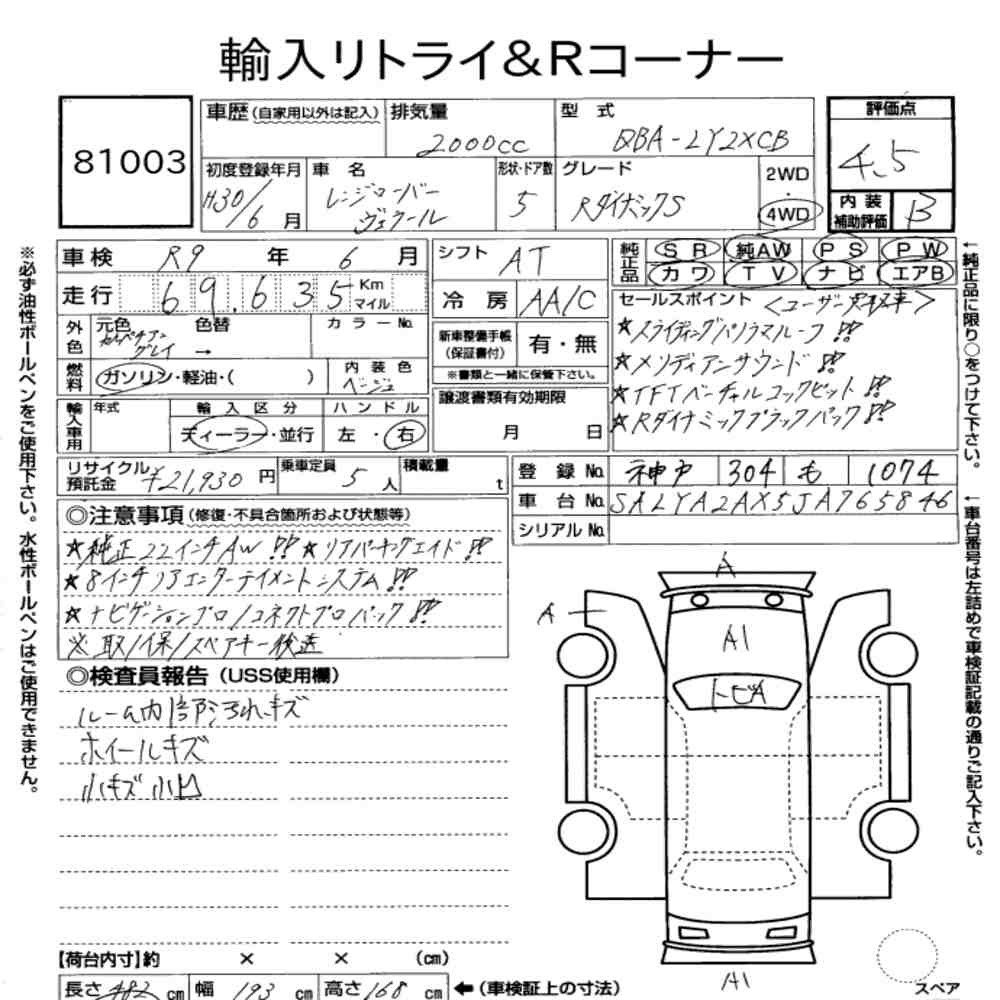 輸入リトライ&Rコーナー
81003
車歴(自家用以外は記入) 排気量 2000cc 型式 QBA-LY2XCB 評価点 4.5
初度登録年月 H30/6月 車名 レンジローバー ヴェラール 形状・ドア数 5 グレード RダイナミックS 2WD・4WD 内装補助評価 B
車検 R9年6月 シフト AT 純正品 SR 純AW PS PW
カワ TV ナビ エアB
走行 69,635 Km マイル 冷房 AA/C セールスポイント <ユーザー買取車>
外色 元色 グレイ 色替 → カラーNo. 新車整備手帳(保証書付) 有・無 ★スライディングパノラマルーフ!!
※書類と一緒に保管下さい。 ★メリディアンサウンド!!
燃料 ガソリン・軽油・( ) 内装色 ベージュ 譲渡書類有効期限 月 日 ★TFTバーチャルコックピット!!
輸入車用 年式 輸入区分 ディーラー・並行 ハンドル 左・右 ★Rダイナミックブラックパック!!
リサイクル預託金 ¥21,930円 乗車定員 5人 積載量 t 登録No. 神戸 304 も 1074
車台No. SALYA2AX5JA765846
シリアルNo.
◎注意事項(修復・不具合箇所および状態等)
★純正22インチAW!! ★リアパーキングエイド!!
★8インチリアエンターテイメントシステム!!
★ナビゲーションプロ/コネクトプロパック!!
※取/保/スペアキー後送
◎検査員報告(USS使用欄)
ルーム内部汚れキズ
ホイールキズ
小キズ小凹
A
A
A1
トビA
A1
【荷台内寸】約 × × (cm)
長さ 482 cm 幅 193 cm 高さ 168 cm ←(車検証上の寸法)
スペア
※必ず油性ボールペンをご使用下さい。水性ボールペンはご使用できません。
←純正品に限り○をつけて下さい。
←車台番号は左詰めで車検証記載の通りご記入下さい。